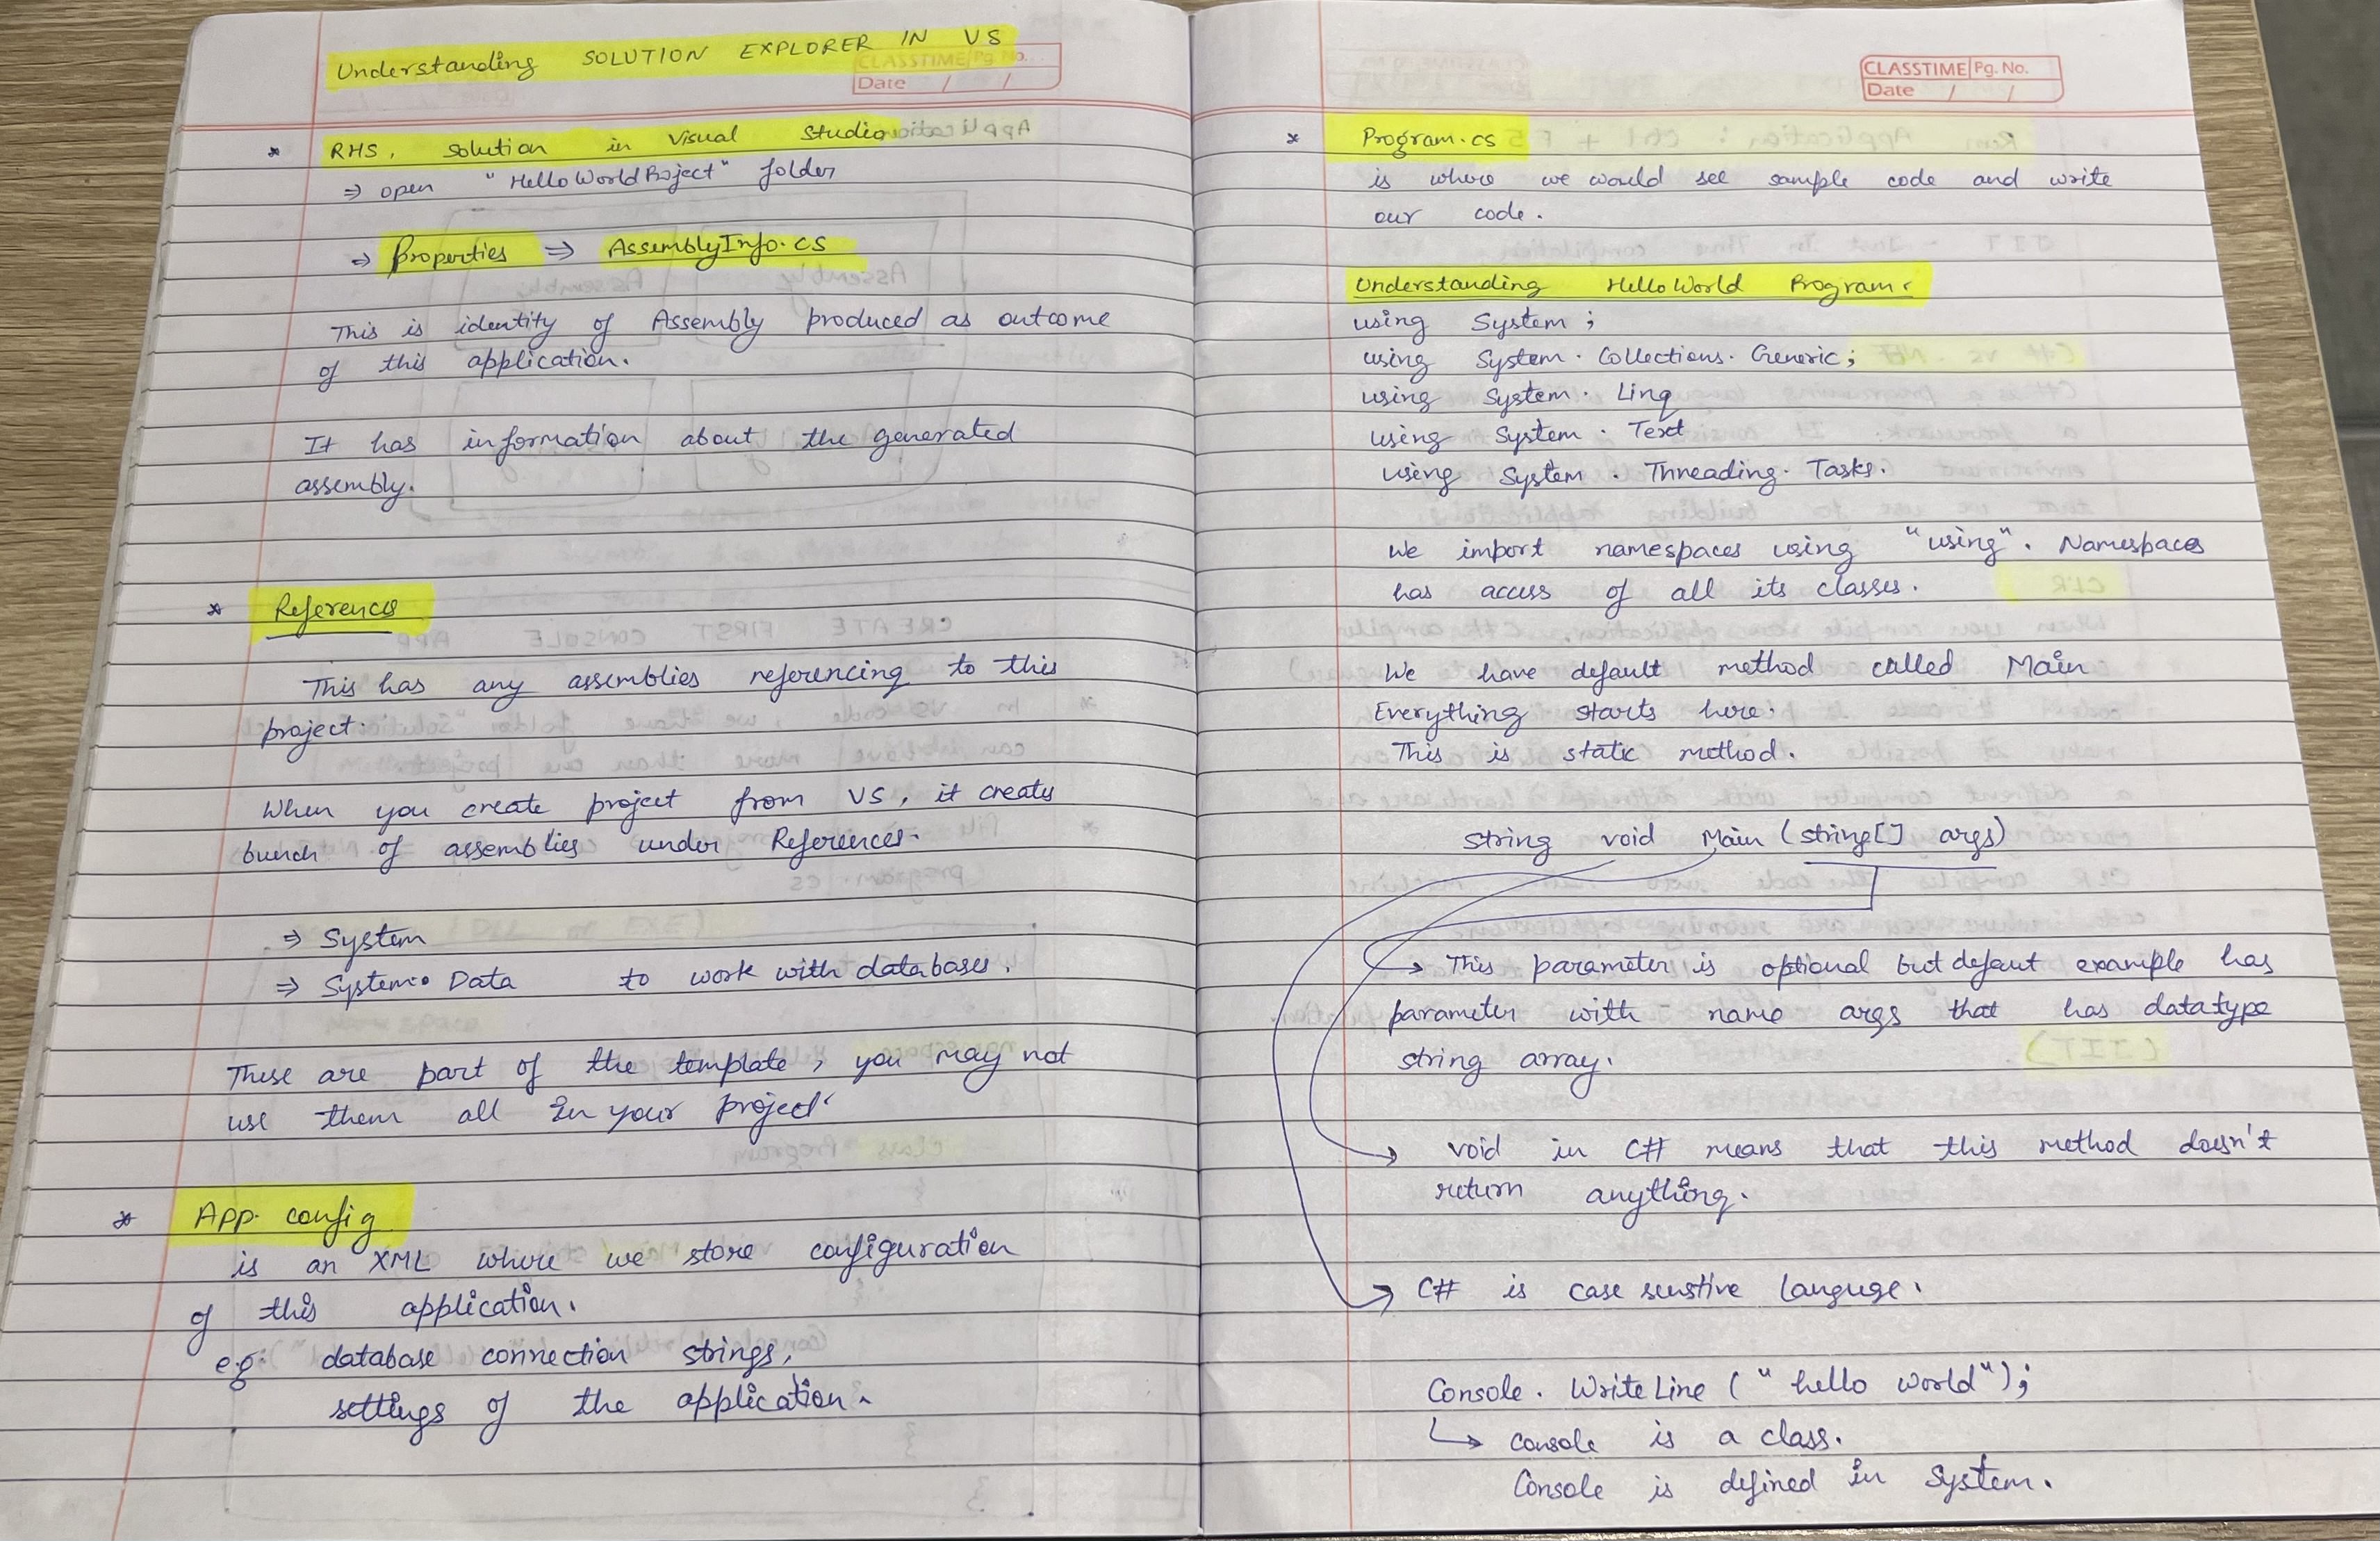 Understanding SOLUTION EXPLORER IN VS
CLASSTIME Pg. No.
Date / /
* RHS, Solution in Visual Studio
⇒ open "HelloWorldProject" folder
⇒ Properties ⇒ AssemblyInfo.cs
This is identity of Assembly produced as outcome
of this application.
It has information about the generated
assembly.
* References
This has any assemblies referencing to this
project.
When you create project from VS, it creates
bunch of assemblies under References.
⇒ System
⇒ System. Data to work with databases.
These are part of the template, you may not
use them all in your project.
* App. config
is an XML where we store configuration
of this application.
e.g. database connection strings,
settings of the application.
CLASSTIME Pg. No.
Date / /
* Program.cs
is where we would see sample code and write
our code.
Understanding HelloWorld Program:
using System;
using System. Collections. Generic;
using System. Linq
using System. Text
using System. Threading. Tasks.
We import namespaces using "using". Namespaces
has access of all its classes.
We have default method called Main
Everything starts here.
This is static method.
string void Main (string[] args)
→ This parameter is optional but defaut example has
parameter with name args that has datatype
string array.
→ void in C# means that this method doesn't
return anything.
→ C# is case senstive languge.
Console. WriteLine ("hello world");
↳ console is a class.
Console is defined in System.